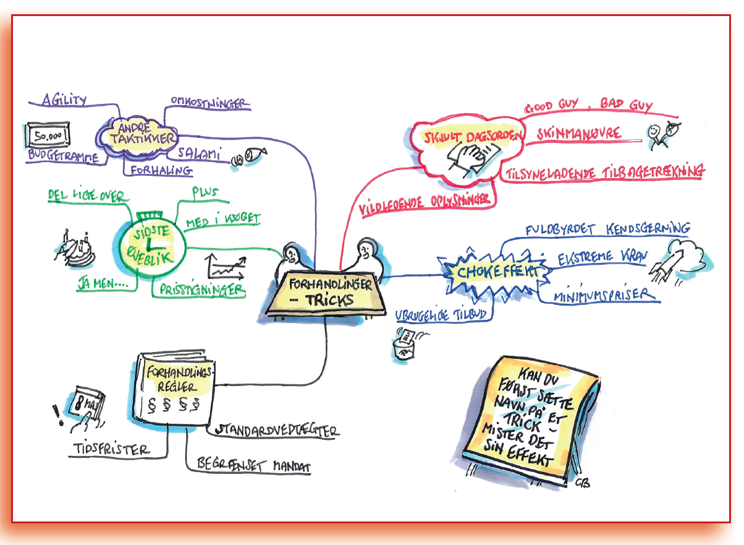 AGILITY
OMKOSTNINGER
ANDRE
TAKTIKKER
50.000
BUDGETRAMME
SALAMI
FORHALING
GOOD GUY, BAD GUY
SKJULT DAGSORDEN
SKINMANØVRE
TILSYNELADENDE TILBAGETRÆKNING
VILDLEDENDE OPLYSNINGER
DEL LIGE OVER
PLUS
MED I KØBET
SIDSTE
ØJEBLIK
JA MEN....
PRISSTIGNINGER
FORHANDLINGER
- TRICKS
FULDBYRDET KENDSGERNING
EKSTREME KRAV
CHOKEFFEKT
MINIMUMSPRISER
UBRUGELIGE TILBUD
FORHANDLINGS-
REGLER
§ § § §
8
!
STANDARDVEDTÆGTER
TIDSFRISTER
BEGRÆNSET MANDAT
KAN DU
FØRST SÆTTE
NAVN PÅ ET
TRICK -
MISTER DET
SIN EFFEKT
CB